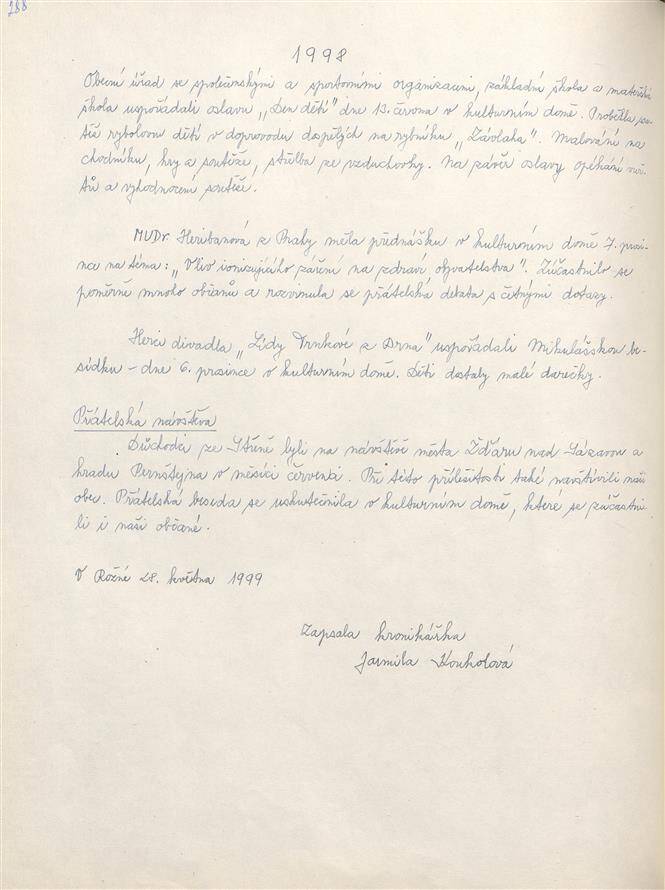 288
1998
Obecní úřad se společenskými a sportovními organizacemi, základní škola a mateřská
škola uspořádali oslavu „Den dětí" dne 13. června v kulturním domě. Proběhla sou-
těž rybolovu dětí v doprovodu dospělých na rybníku „Závlaha". Malování na
chodníku, hry a soutěže, střelba ze vzduchovky. Na závěr oslavy opékání vuř-
tů a vyhodnocení soutěže.
MUDr Heribanová z Prahy měla přednášku v kulturním domě 7. prosi-
nce na téma: „Vliv ionizujícího záření na zdraví obyvatelstva". Zúčastnilo se
poměrně mnoho občanů a rozvinula se přátelská debata s četnými dotazy.
Herci divadla „Lídy Trnkové z Brna" uspořádali Mikulášskou be-
sídku – dne 6. prosince v kulturním domě. Děti dostaly malé dárečky.
Přátelská návštěva
Důchodci ze byli na návštěvě města Žďáru nad Sázavou a
hradu Pernštejna v měsíci červenci. Při této příležitosti také navštívili naši
obec. Přátelská beseda se uskutečnila v kulturním domě, které se zúčastni-
li i naši občané.
V Rožné 28. května 1999
Zapsala kronikářka
Jarmila